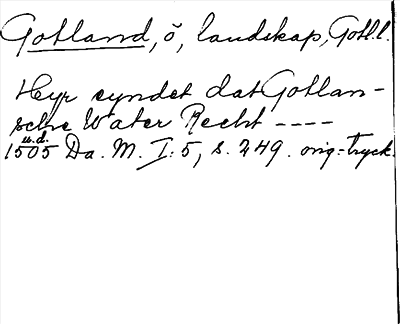 Gotland, ö, landskap, Gotl.l.
Hyr eyndet dat Gotlan-
sche Water Recht ----
u.d.
1505 Da. M. I: 5, s. 249. orig.-tryck.